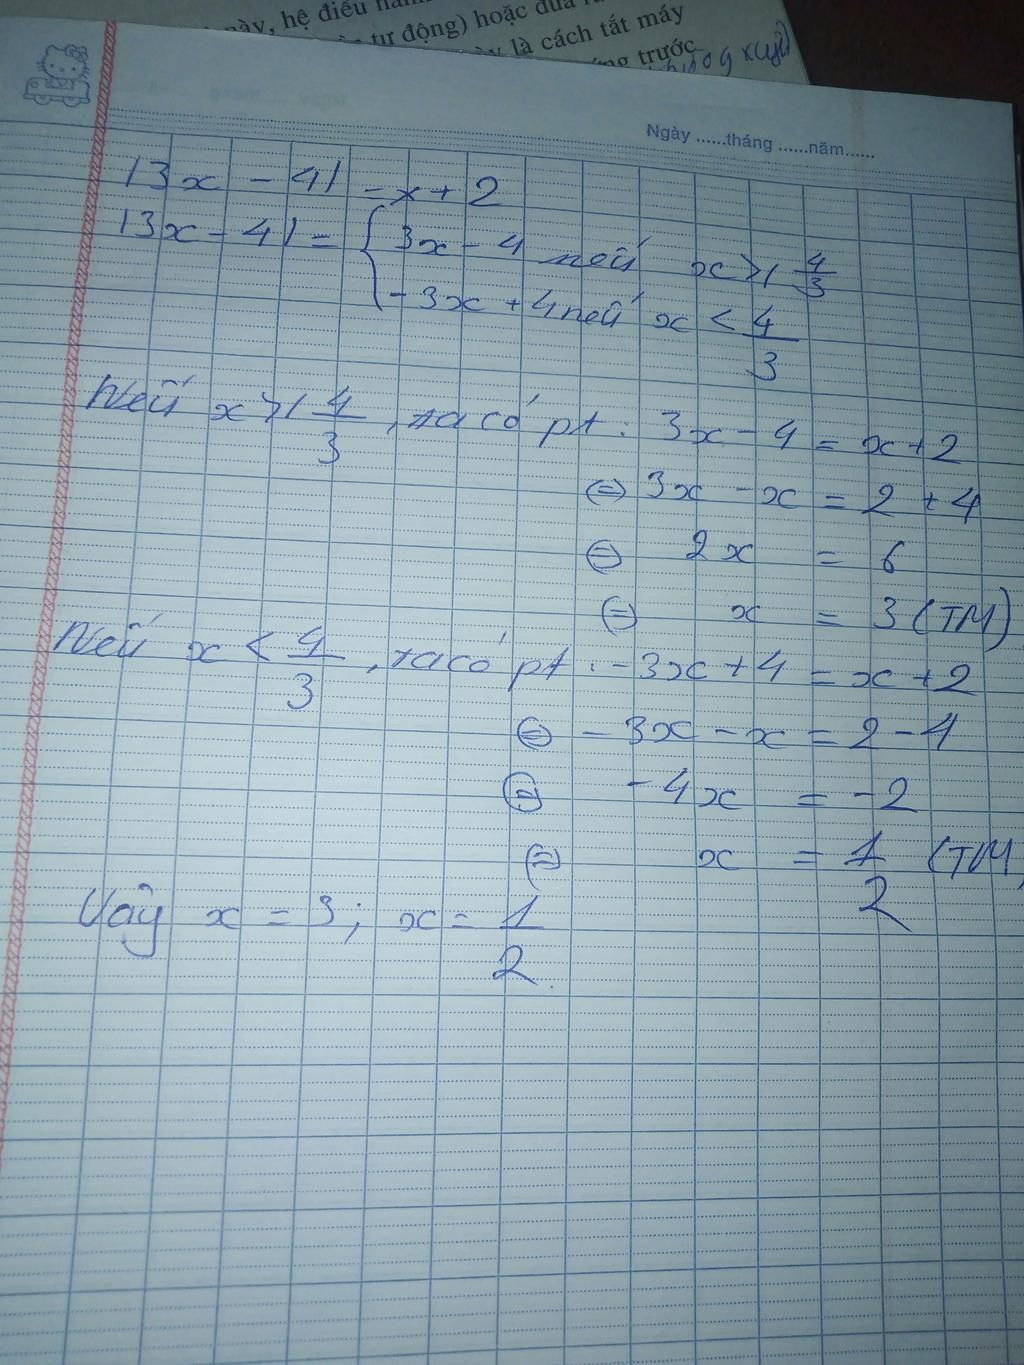 này, hệ điều hàn
tự động) hoặc đưa
là cách tắt máy
trước
Ngày ......tháng ......năm......
|3x - 4| = x + 2
|3x - 4| = { 3x - 4 nếu x ≥ 4/3
- 3x + 4 nếu x < 4/3
Nếu x ≥ 4/3, ta có pt: 3x - 4 = x + 2
⇔ 3x - x = 2 + 4
⇔ 2x = 6
⇔ x = 3 (TM)
Nếu x < 4/3, ta có pt: -3x + 4 = x + 2
⇔ - 3x - x = 2 - 4
⇔ -4x = -2
⇔ x = 1/2 (TM)
Vậy x = 3; x = 1/2.